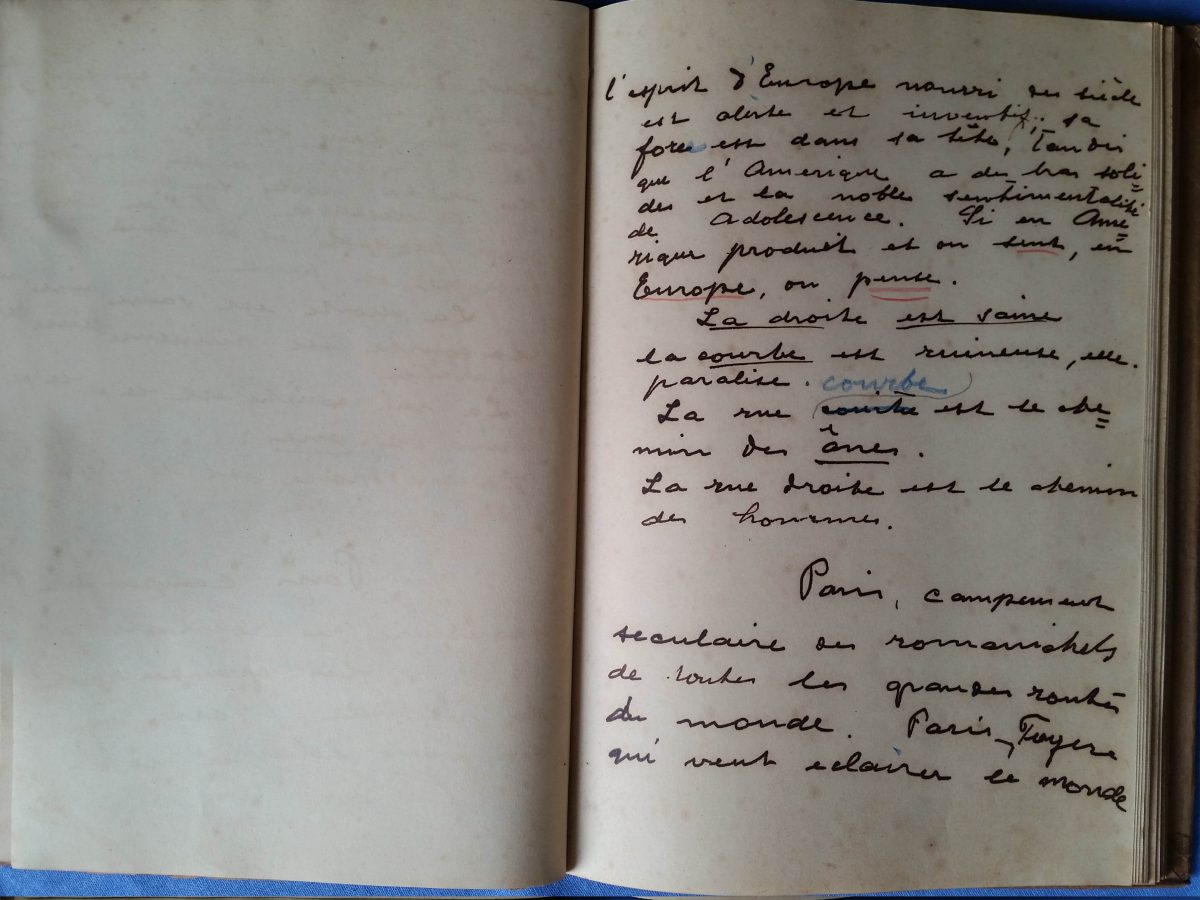 l'esprit d'Europe nourri des siècle
est alerte et inventif; sa
force est dans sa tête, Tandis
que l'Amerique a des bras soli=
des et la noble sentimentalité
de adolescence. Si en Ame=
rique produit et on sent, en
Europe, on pense.
La droite est saine
la courbe est ruineuse, elle.
paralise. courbe
La rue courbe est le che=
min des ânes.
La rue droite est le chemin
des hommes.
Paris, campement
seculaire des romanichels
de toutes les grandes routes
du monde. Paris-Foyere
qui veut eclairer le monde